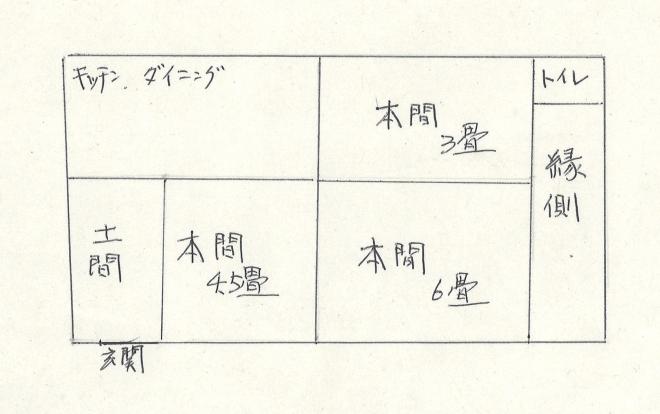 キッチン、ダイニング
本間
3畳
トイレ
縁側
土間
本間
4.5畳
本間
6畳
玄関